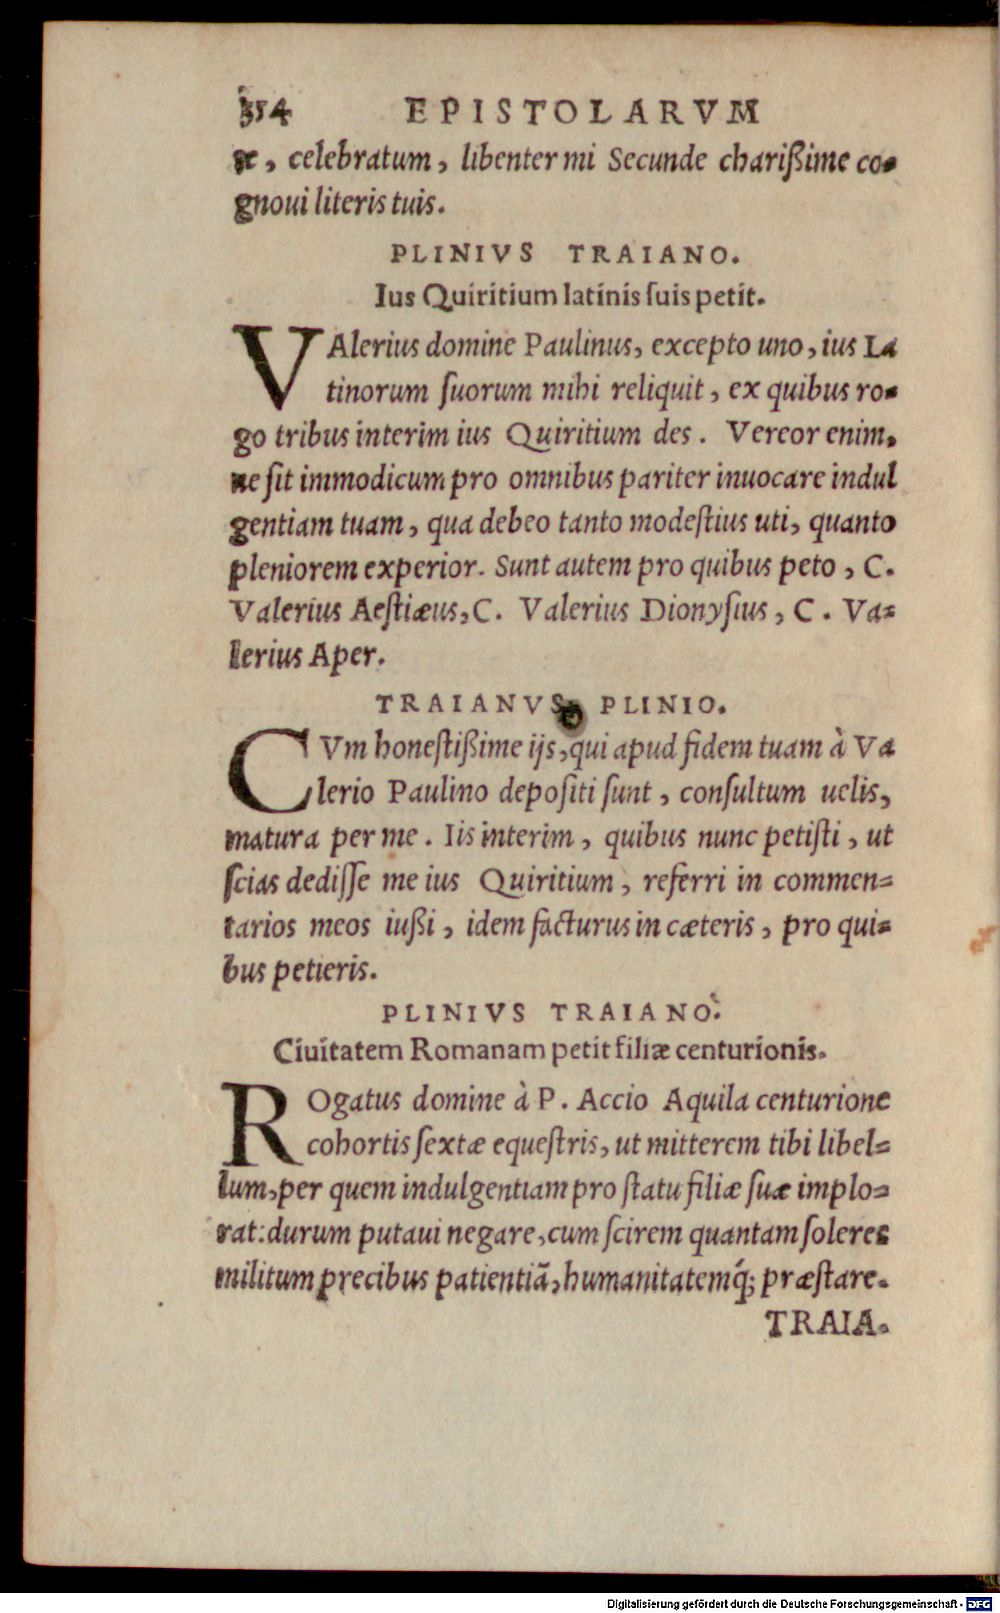 314 EPISTOLARVM
æ, celebratum, libenter mi Secunde charißime co-
gnoui literis tuis.
PLINIVS TRAIANO.
Ius Quiritium latinis suis petit.
VAlerius domine Paulinus, excepto uno, ius La
tinorum suorum mihi reliquit, ex quibus ro-
go tribus interim ius Quiritium des. Vereor enim,
ne sit immodicum pro omnibus pariter inuocare indul
gentiam tuam, qua debeo tanto modestius uti, quanto
pleniorem experior. Sunt autem pro quibus peto, C.
Valerius Aestiæus, C. Valerius Dionysius, C. Va-
lerius Aper.
TRAIANVS PLINIO.
CVm honestißime ijs, qui apud fidem tuam à Va
lerio Paulino depositi sunt, consultum uelis,
matura per me. Iis interim, quibus nunc petisti, ut
scias dedisse me ius Quiritium, referri in commen-
tarios meos iußi, idem facturus in cæteris, pro qui-
bus petieris.
PLINIVS TRAIANO.
Ciuitatem Romanam petit filiæ centurionis.
ROgatus domine à P. Accio Aquila centurione
cohortis sextæ equestris, ut mitterem tibi libel-
lum, per quem indulgentiam pro statu filiæ suæ implo-
rat: durum putaui negare, cum scirem quantam soleres
militum precibus patientiã, humanitatemq́; præstare.
TRAIA-
Digitalisierung gefördert durch die Deutsche Forschungsgemeinschaft - DFG